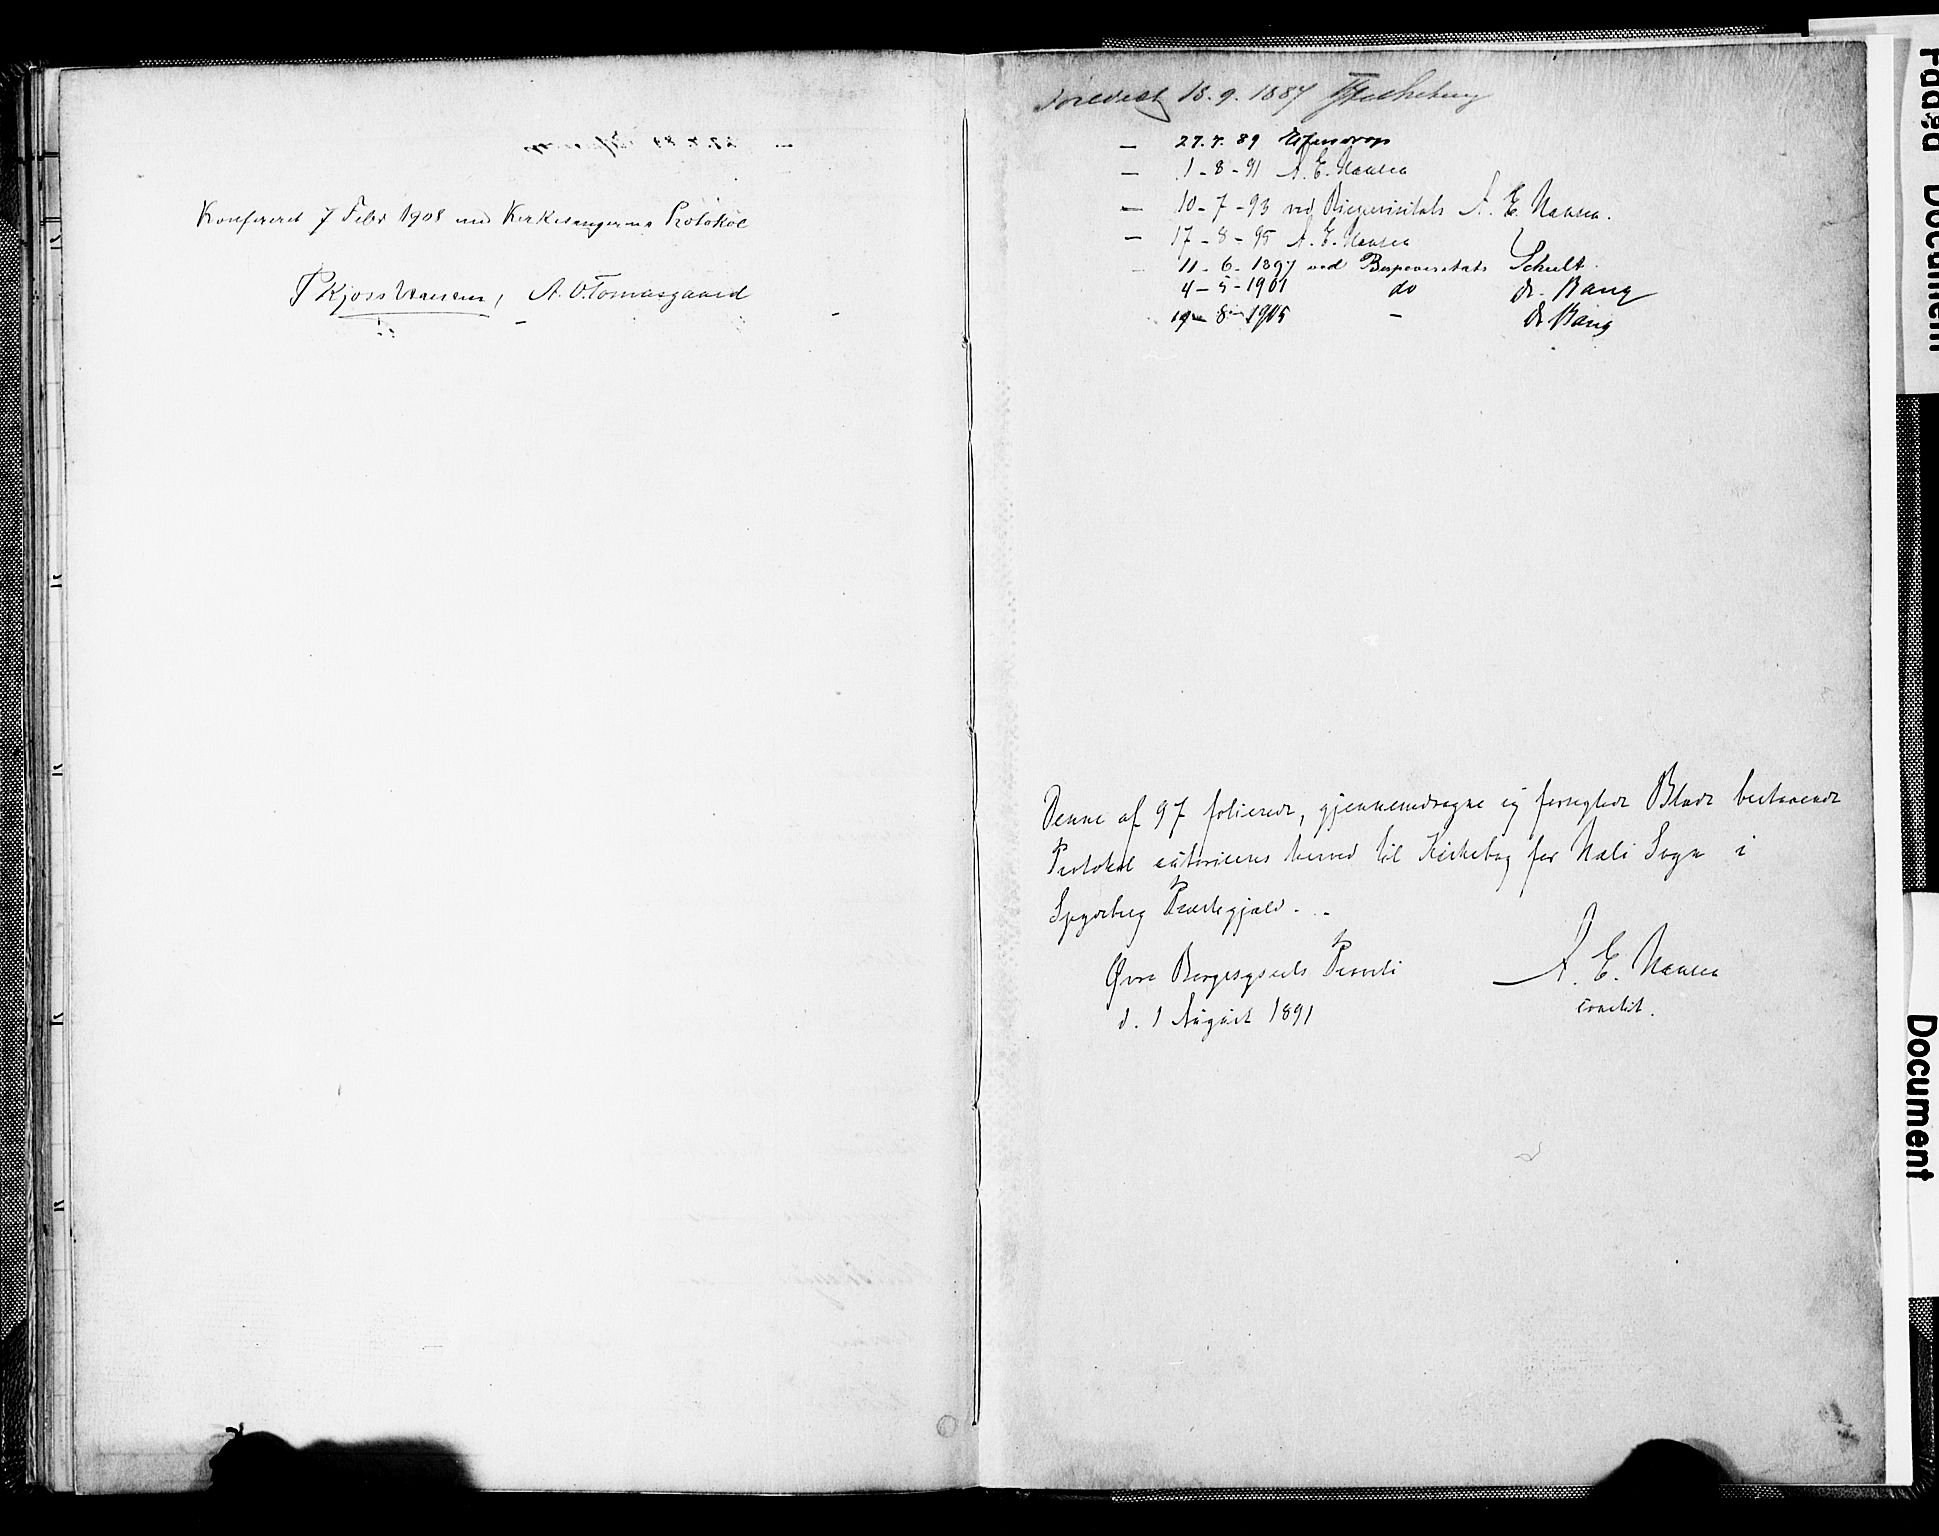 Konfereret 7 Febr 1908 med Kirkesangerens Protokol
P Kjoss Hansen, A. O. Tomasgaard
Forevist 18.9.1887
— 27.7.89
— 1-8-91 A. E. Hansen
— 10-7-93 ved Bispevisitats A. E. Hansen.
— 17-8-95 A. E. Hansen
11-6-1897 ved Bispevisitats
4-5-1901 do Dr. Bang
19-8-1905 — Dr Bang
Denne af 97 folierede, gjennemdragne og forseglede Blade bestaaende
Protokol autoriseres herved til Kirkebog for Sogn i
Spydeberg Præstegjæld.
Øvre Borgesyssels Provsti
A. E. Hansen
d. 1 August 1891
const.
Document
Document